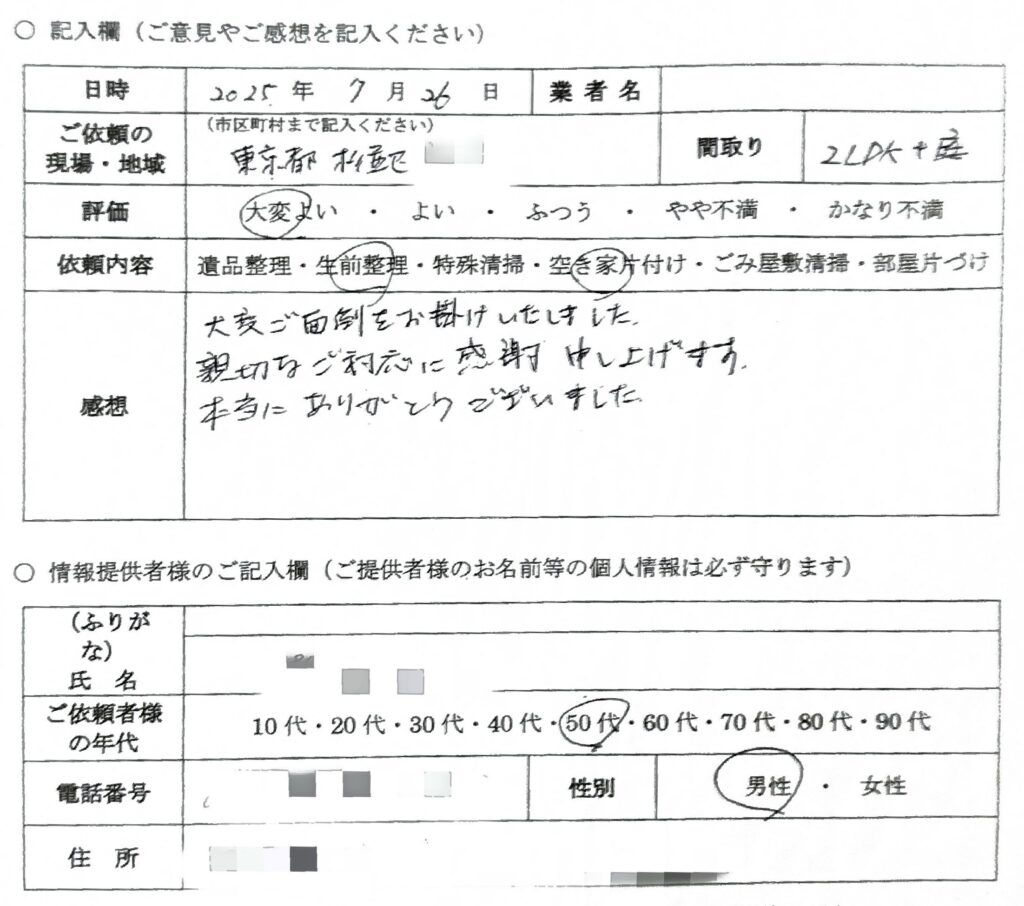 ○ 記入欄（ご意見やご感想を記入ください）
日時 2025 年 7 月 26 日 業者名
ご依頼の
現場・地域
（市区町村まで記入ください）
東京都 杉並区
間取り 2LDK+庭
評価 大変よい ・ よい ・ ふつう ・ やや不満 ・ かなり不満
依頼内容 遺品整理・生前整理・特殊清掃・空き家片付け・ごみ屋敷清掃・部屋片づけ
感想
大変ご面倒をお掛けいたしました.
親切なご対応に感謝申し上げます.
本当にありがとうございました.
○ 情報提供者様のご記入欄（ご提供者様のお名前等の個人情報は必ず守ります）
（ふりが
な）
氏 名
ご依頼者様
の年代
10代・20代・30代・40代・50代・60代・70代・80代・90代
電話番号 性別 男性 ・ 女性
住 所